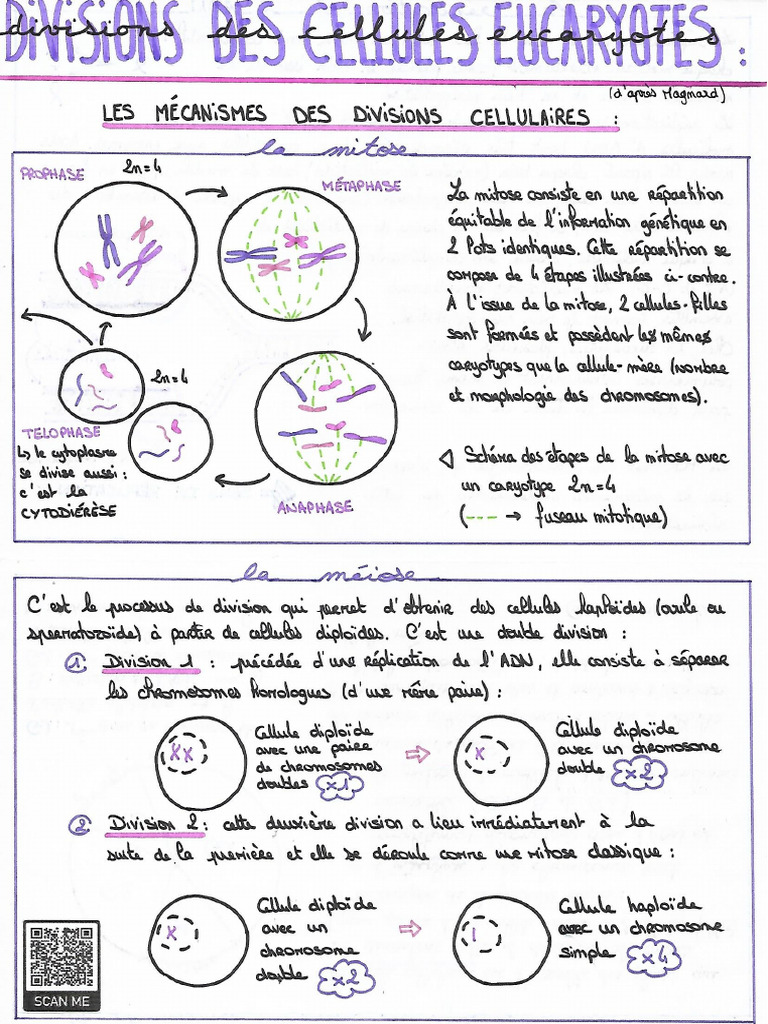 DIVISIONS DES CELLULES EUCARYOTES :
divisions des cellules eucaryotes
(d'après Magnard)
LES MÉCANISMES DES DIVISIONS CELLULAIRES :
la mitose
PROPHASE
2n=4
MÉTAPHASE
2n=4
TELOPHASE
↳ le cytoplasme
se divise aussi :
c'est la
CYTODIÉRÈSE
ANAPHASE
La mitose consiste en une répartition
équitable de l'information génétique en
2 lots identiques. Cette répartition se
compose de 4 étapes illustrées ci-contre.
À l'issue de la mitose, 2 cellules-filles
sont formées et possèdent les mêmes
caryotypes que la cellule-mère (nombre
et morphologie des chromosomes).
◁ Schéma des étapes de la mitose avec
un caryotype 2n=4
(--- → fuseau mitotique)
la méiose
C'est le processus de division qui permet d'obtenir des cellules haploïdes (ovule ou
spermatozoïde) à partir de cellules diploïdes. C'est une double division :
① Division 1 : précédée d'une réplication de l'ADN, elle consiste à séparer
les chromosomes homologues (d'une même paire) :
Cellule diploïde
avec une paire
de chromosomes
doubles x1
⇨
Cellule diploïde
avec un chromosome
double x2
② Division 2 : cette deuxième division a lieu immédiatement à la
suite de la première et elle se déroule comme une mitose classique :
Cellule diploïde
avec un
chromosome
double x2
⇨
Cellule haploïde
avec un chromosome
simple x4
SCAN ME